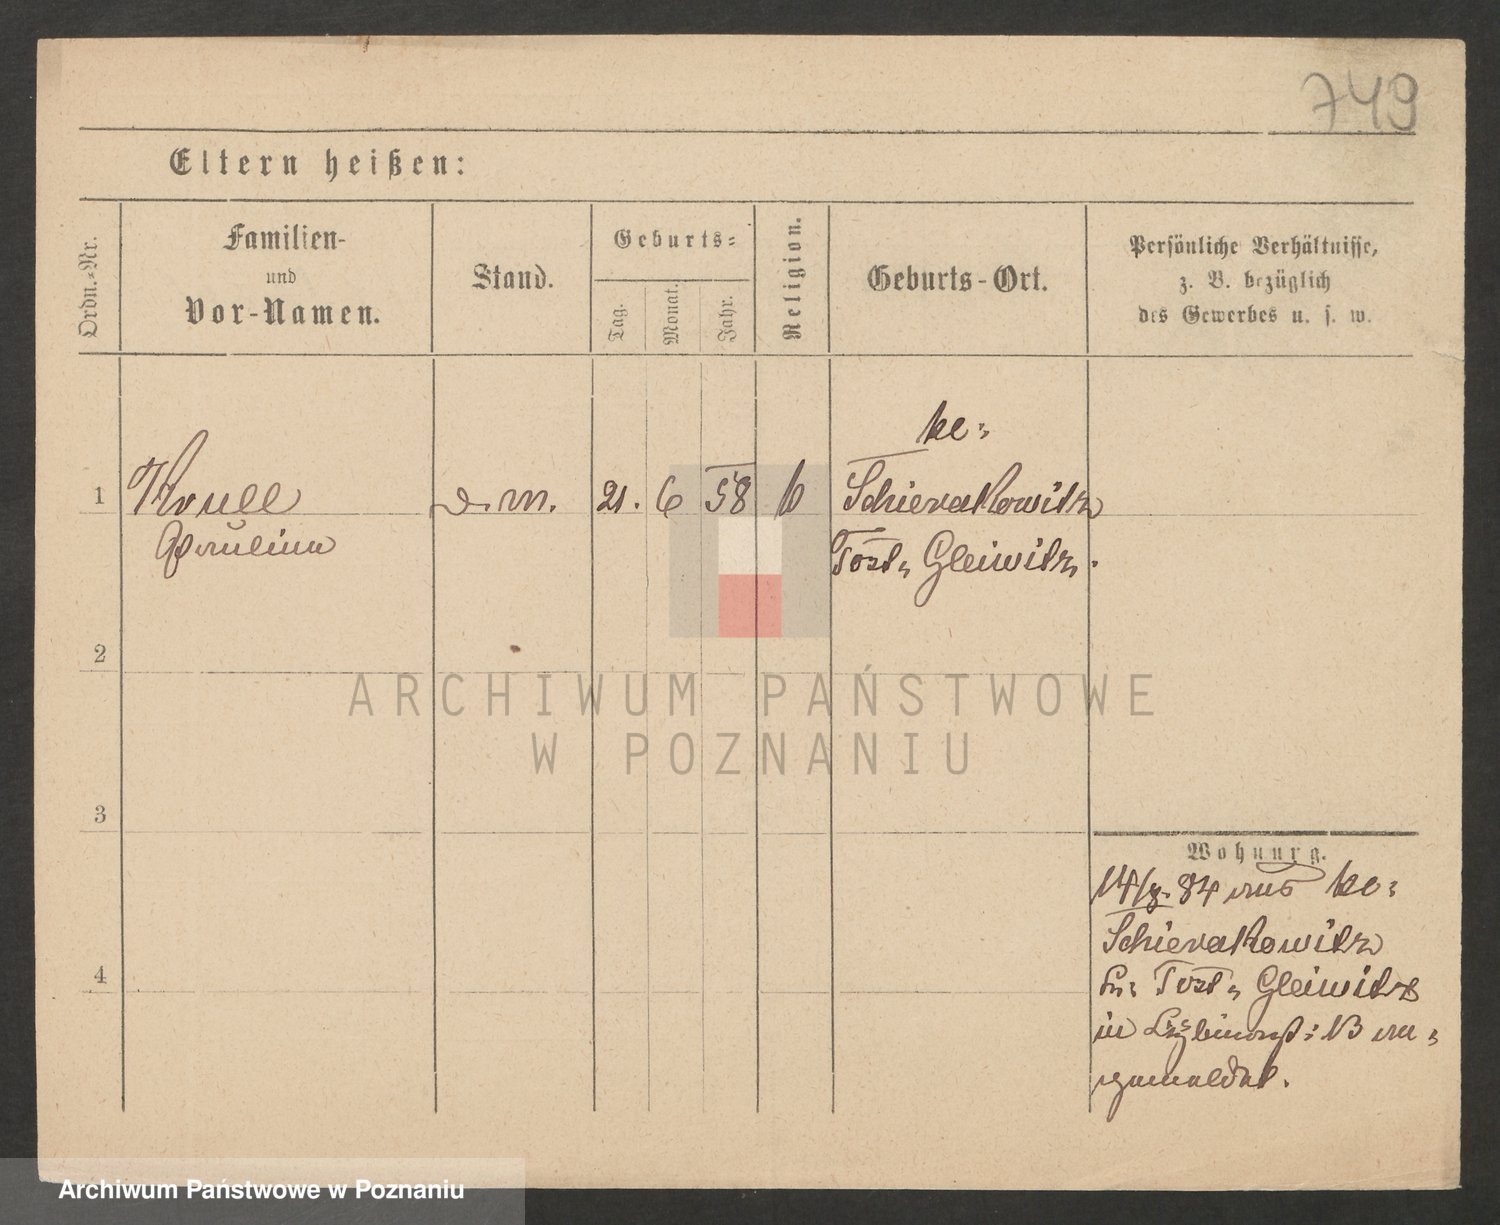 749
Eltern heißen:
Ordn.-Nr.
Familien-
und
Vor-Namen.
Stand.
Geburts-
Tag.
Monat.
Jahr.
Religion.
Geburts-Ort.
Persönliche Verhältnisse,
z. B. bezüglich
des Gewerbes u. s. w.
1
Kroll
Paulina
d. m.
21.
6
58
k
Schierakowitz
Tost- Gleiwitz.
2
3
4
Wohnung.
84 aus
Schierakowitz
Kr: Tost- Gleiwitz
in 13 an-
gemeldet.
ARCHIWUM PAŃSTWOWE
W POZNANIU
Archiwum Państwowe w Poznaniu